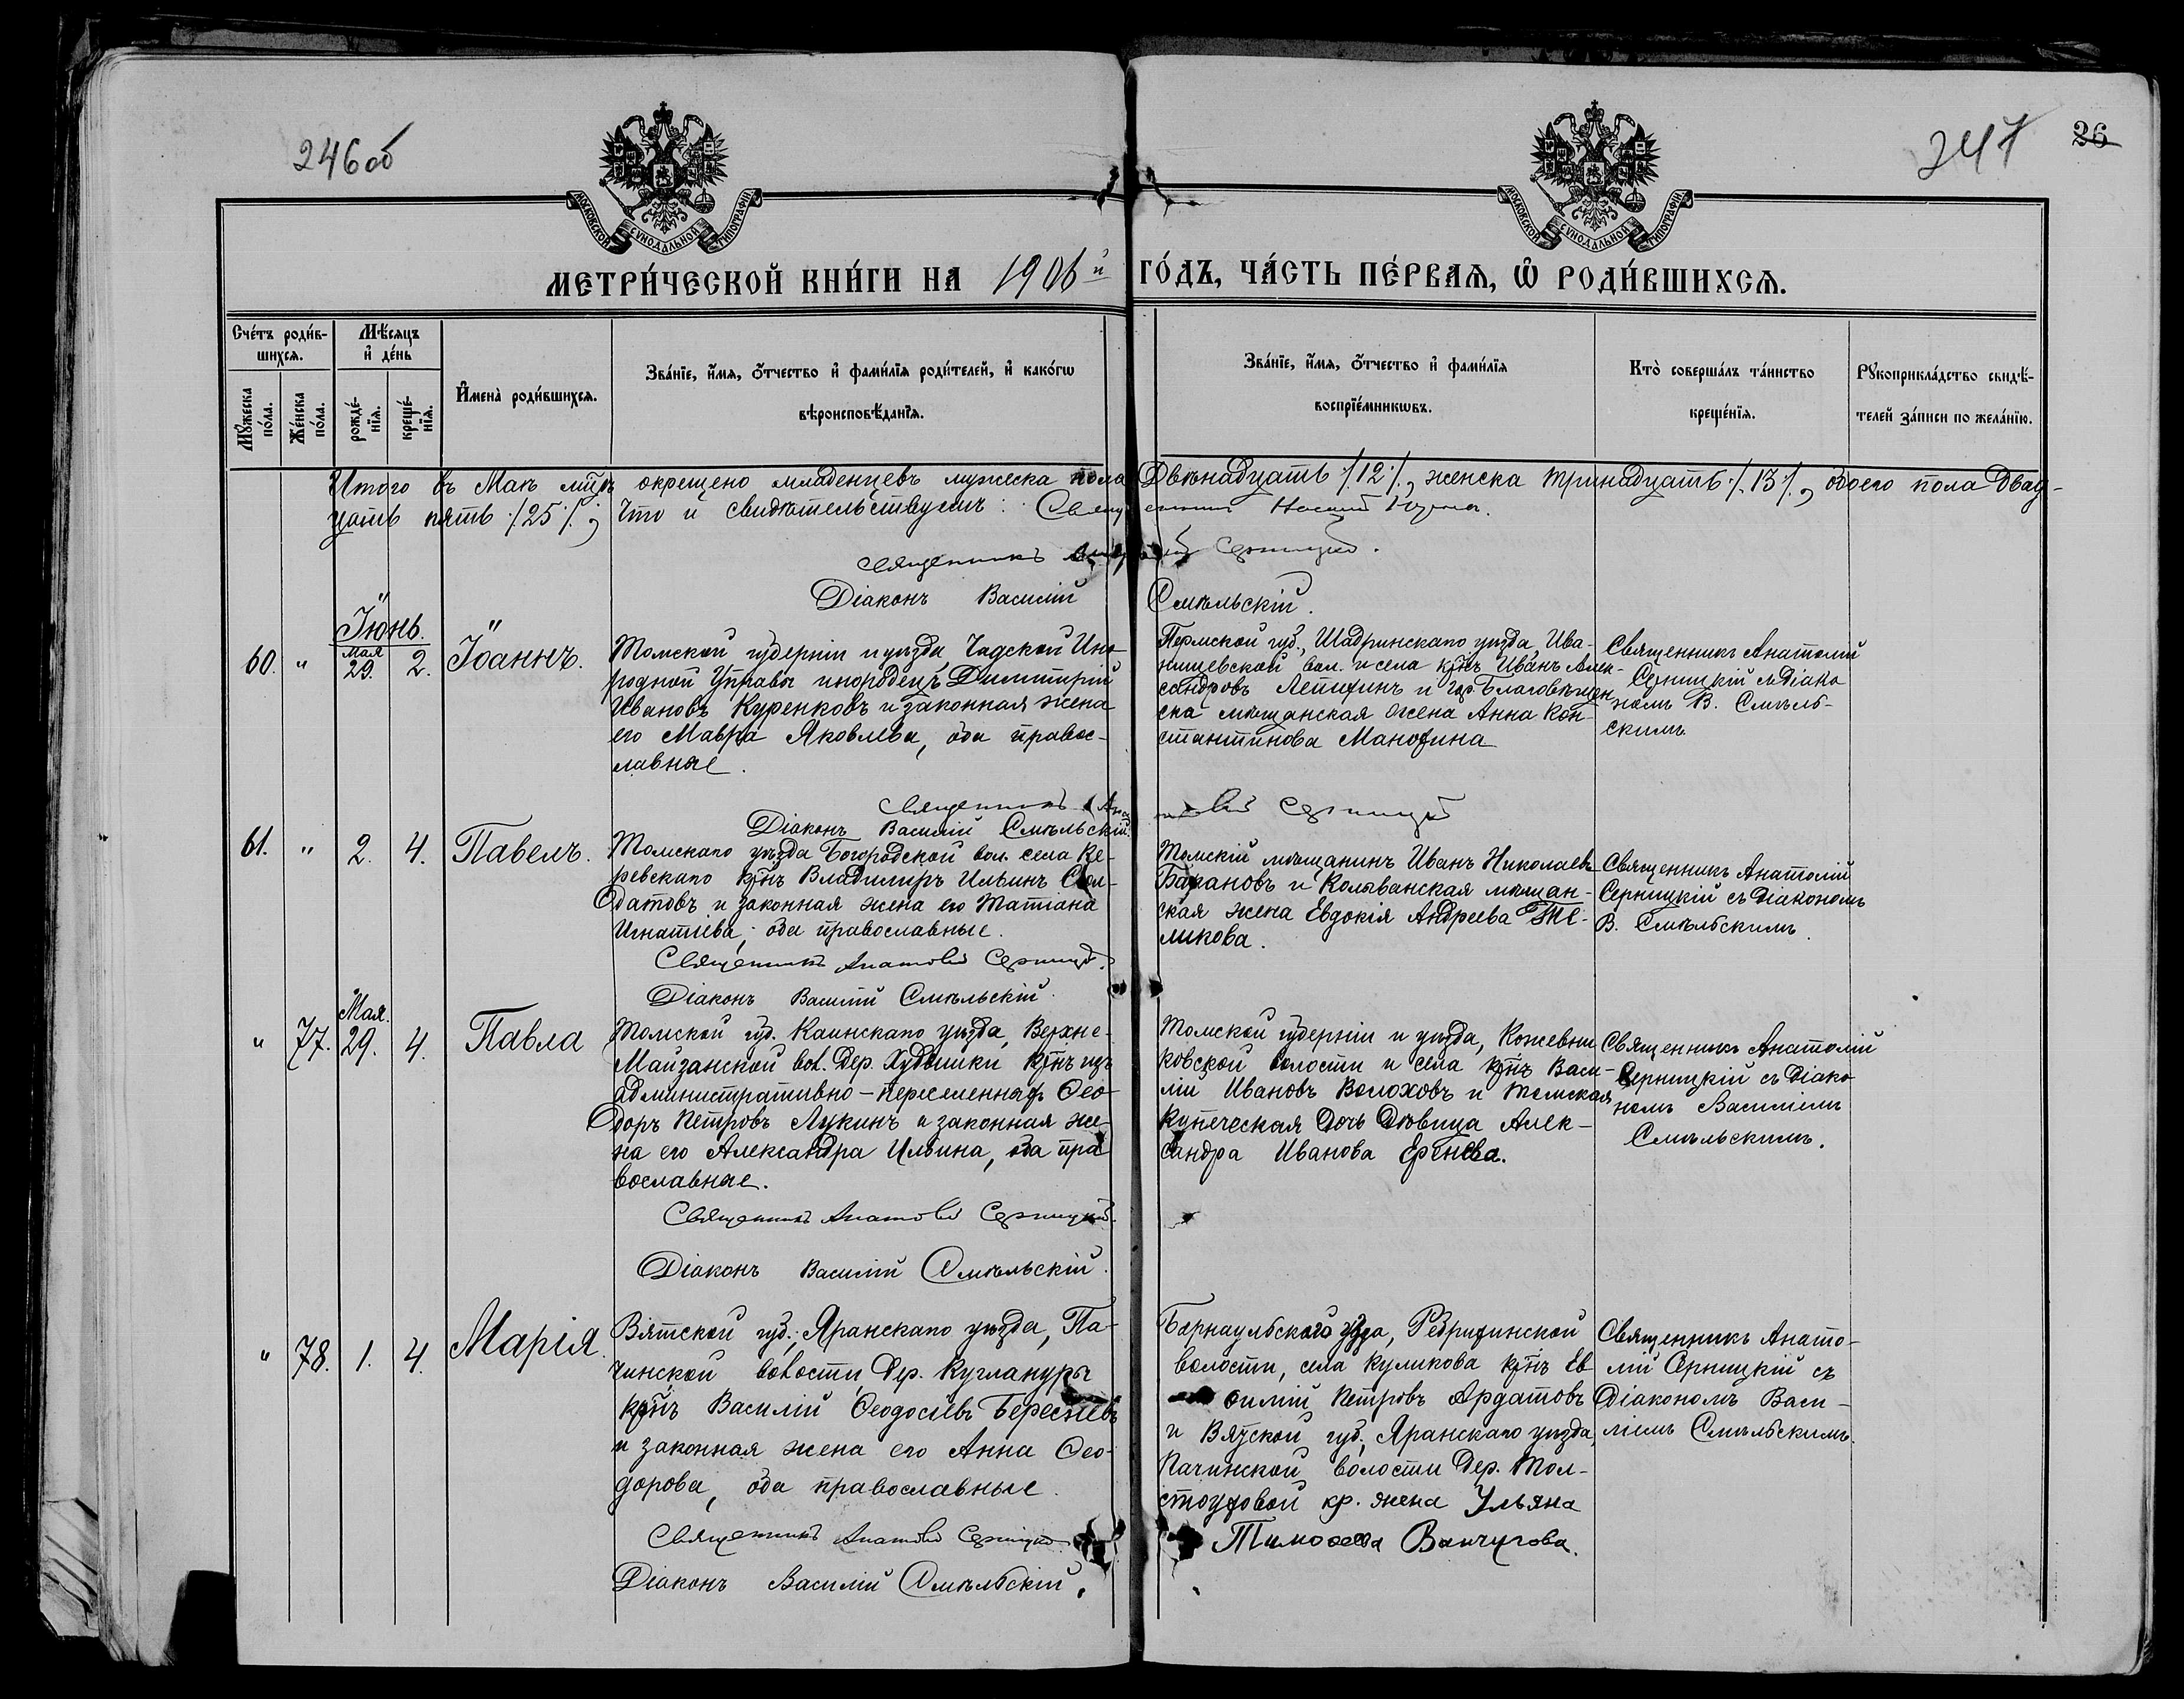 246об
247
26
МОСКОВСКОЙ СѴНОДАЛЬНОЙ ТИПОГРАФІИ
МОСКОВСКОЙ СѴНОДАЛЬНОЙ ТИПОГРАФІИ
МЕТРИ́ЧЕСКОЙ КНИ́ГИ НА 1906й ГО́ДЪ, ЧА́СТЬ ПЕ́РВАѦ, Ѡ РОДИ́ВШИХСѦ.
Сче́тъ роди́в-
шихсѧ.
Мꙋ́жеска по́ла.
Же́нска по́ла.
Мѣ́сѧцъ
и де́нь
рожде́-
нїѧ.
креще́-
нїѧ.
Имена̀ роди́вшихсѧ.
Зва́нїе, и́мѧ, ѻ҆́тчество и фами́лїѧ роди́телей, и како́гѡ
вѣроисповѣ́данїѧ.
Зва́нїе, и́мѧ, ѻ҆́тчество и фами́лїѧ
воспрїе́мникѡвъ.
Кто̀ соверша́лъ та́инство
креще́нїѧ.
Рꙋкоприкла́дство свидѣ́-
телей за́писи по жела́нїю.
Итого въ Маѣ мцѣ окрещено младенцевъ мужеска пола Двѣнадцать /.12./, женска тринадцать /.13./, обоего пола Двад-
цать пять /.25./, Что и свидѣтельствуемъ: Священникъ
Священникъ Анатолій Серницкій.
Діаконъ Василій Смѣльскій.
Іюнь.
60. " Мая 29. 2. Іоаннъ.
Томской губерніи и уѣзда Чадской Ино-
родной Управы инородецъ Димитрій
Ивановъ Куренковъ и законная жена
его Мавра Яковлева, оба правос-
лавные.
Пермской губ., Шадринскаго уѣзда, Ива-
нищевской вол. и села крнъ Иванъ Алек-
сандровъ Лепихинъ и гор. Благовѣщен
ска мѣщанская жена Анна Кон-
стантинова Манохина
Священникъ Анатолій
Серницкій съ Діако
номъ В. Смѣль-
скимъ
Священникъ Анатолій Серницкій
Діаконъ Василій Смѣльскій.
61. " 2. 4. Павелъ.
Томскаго уѣзда Богородской вол. села Ке-
ревскаго крнъ Владимиръ Ильинъ Сол-
датовъ и законная жена его Татіана
Игнатіева; оба православные.
Томскій мѣщанинъ Иванъ Николаевъ
Барановъ и Колыванская мѣщан-
ская жена Евдокія Андреева
ликова.
Священникъ Анатолій
Серницкій съ Діакономъ
В. Смѣльскимъ.
Священникъ Анатолій Серницкій.
Діаконъ Василій Смѣльскій.
" 77. Мая. 29. 4. Павла
Томской губ. Каинскаго уѣзда, Верхне-
Майзанской вол. Дер. Худышки крнъ изъ
административно-переселенныхъ Ѳео-
доръ Петровъ Лукинъ и законная же-
на его Александра Ильина, оба пра
вославные.
Томской губерніи и уѣзда, Кожевни
ковской волости и села крнъ Васи-
лій Ивановъ Волоховъ и Томская
купеческая дочь Дѣвица Алек-
сандра Иванова Еренева.
Священникъ Анатолій
Серницкій съ Діако
номъ Василіемъ
Смѣльскимъ.
Священникъ Анатолій Серницкій.
Діаконъ Василій Смѣльскій.
" 78. 1. 4. Марія.
Вятской губ., Яранскаго уѣзда, Па-
чинской волости, Дер. Куглануры
крнъ Василій Ѳеодосіевъ Береснёвъ
и законная жена его Анна Ѳео-
дорова, оба православные.
Барнаульскаго уѣзда, Ребрихинской
волости, села Куликова крнъ Ев
ѳимій Петровъ Ардатовъ
и Вятской губ., Яранскаго уѣзда,
Пачинской волости Дер. Тол-
стоуховой кр. жена Ульяна
Тимоѳеева Ванчугова.
Священникъ Анато-
лій Серницкій съ
Діакономъ Васи-
ліемъ Смѣльскимъ.
Священникъ Анатолій Серницкій
Діаконъ Василій Смѣльскій.